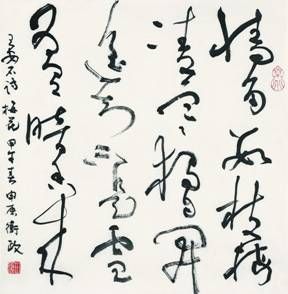 墙角数枝梅
凌寒独自開
遥知不是雪
为有暗香来
王安石诗 梅花 甲午春 衛政